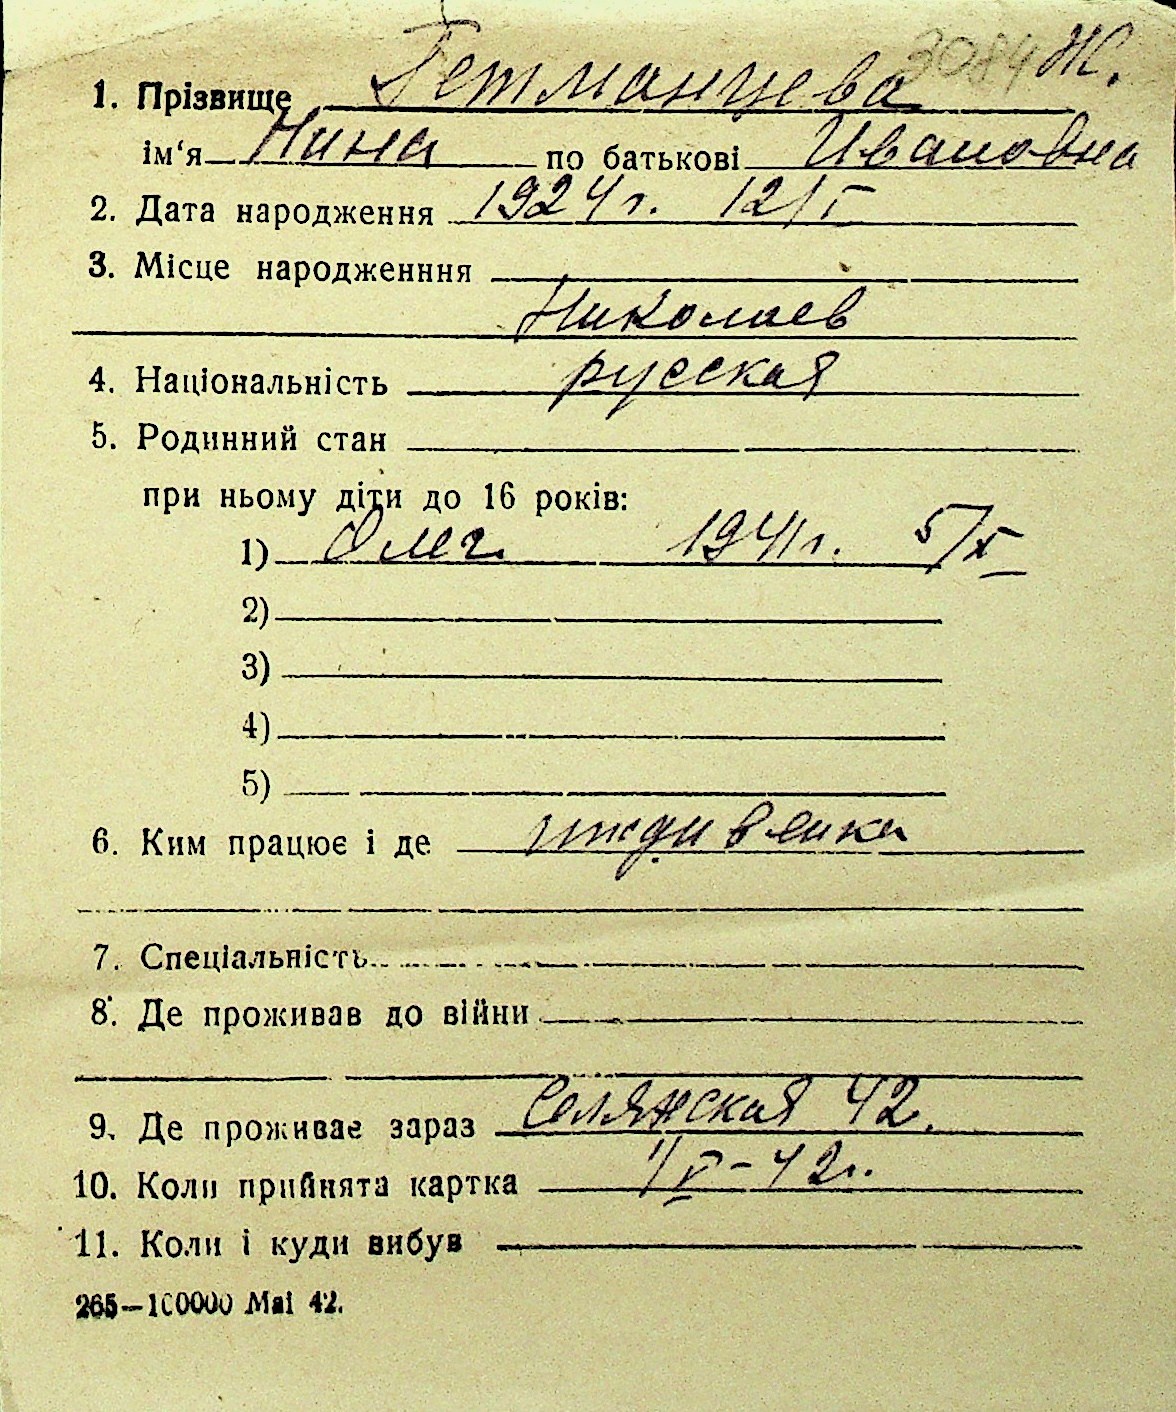 3084 Ж.
1. Прізвище Гетманцева
ім‘я Нина по батькові Ивановна
2. Дата народження 1924 г. 12/I
3. Місце народженння
Николаев
4. Національність русская
5. Родинний стан
при ньому діти до 16 років:
1) Олег. 1941 г. 5/X
2)
3)
4)
5)
6. Ким працює і де иждивенка
7. Спеціальність
8. Де проживав до війни
9. Де проживає зараз Селянская 42.
10. Коли прийнята картка 1/V-42 г.
11. Коли і куди вибув
265—100000 Маі 42.